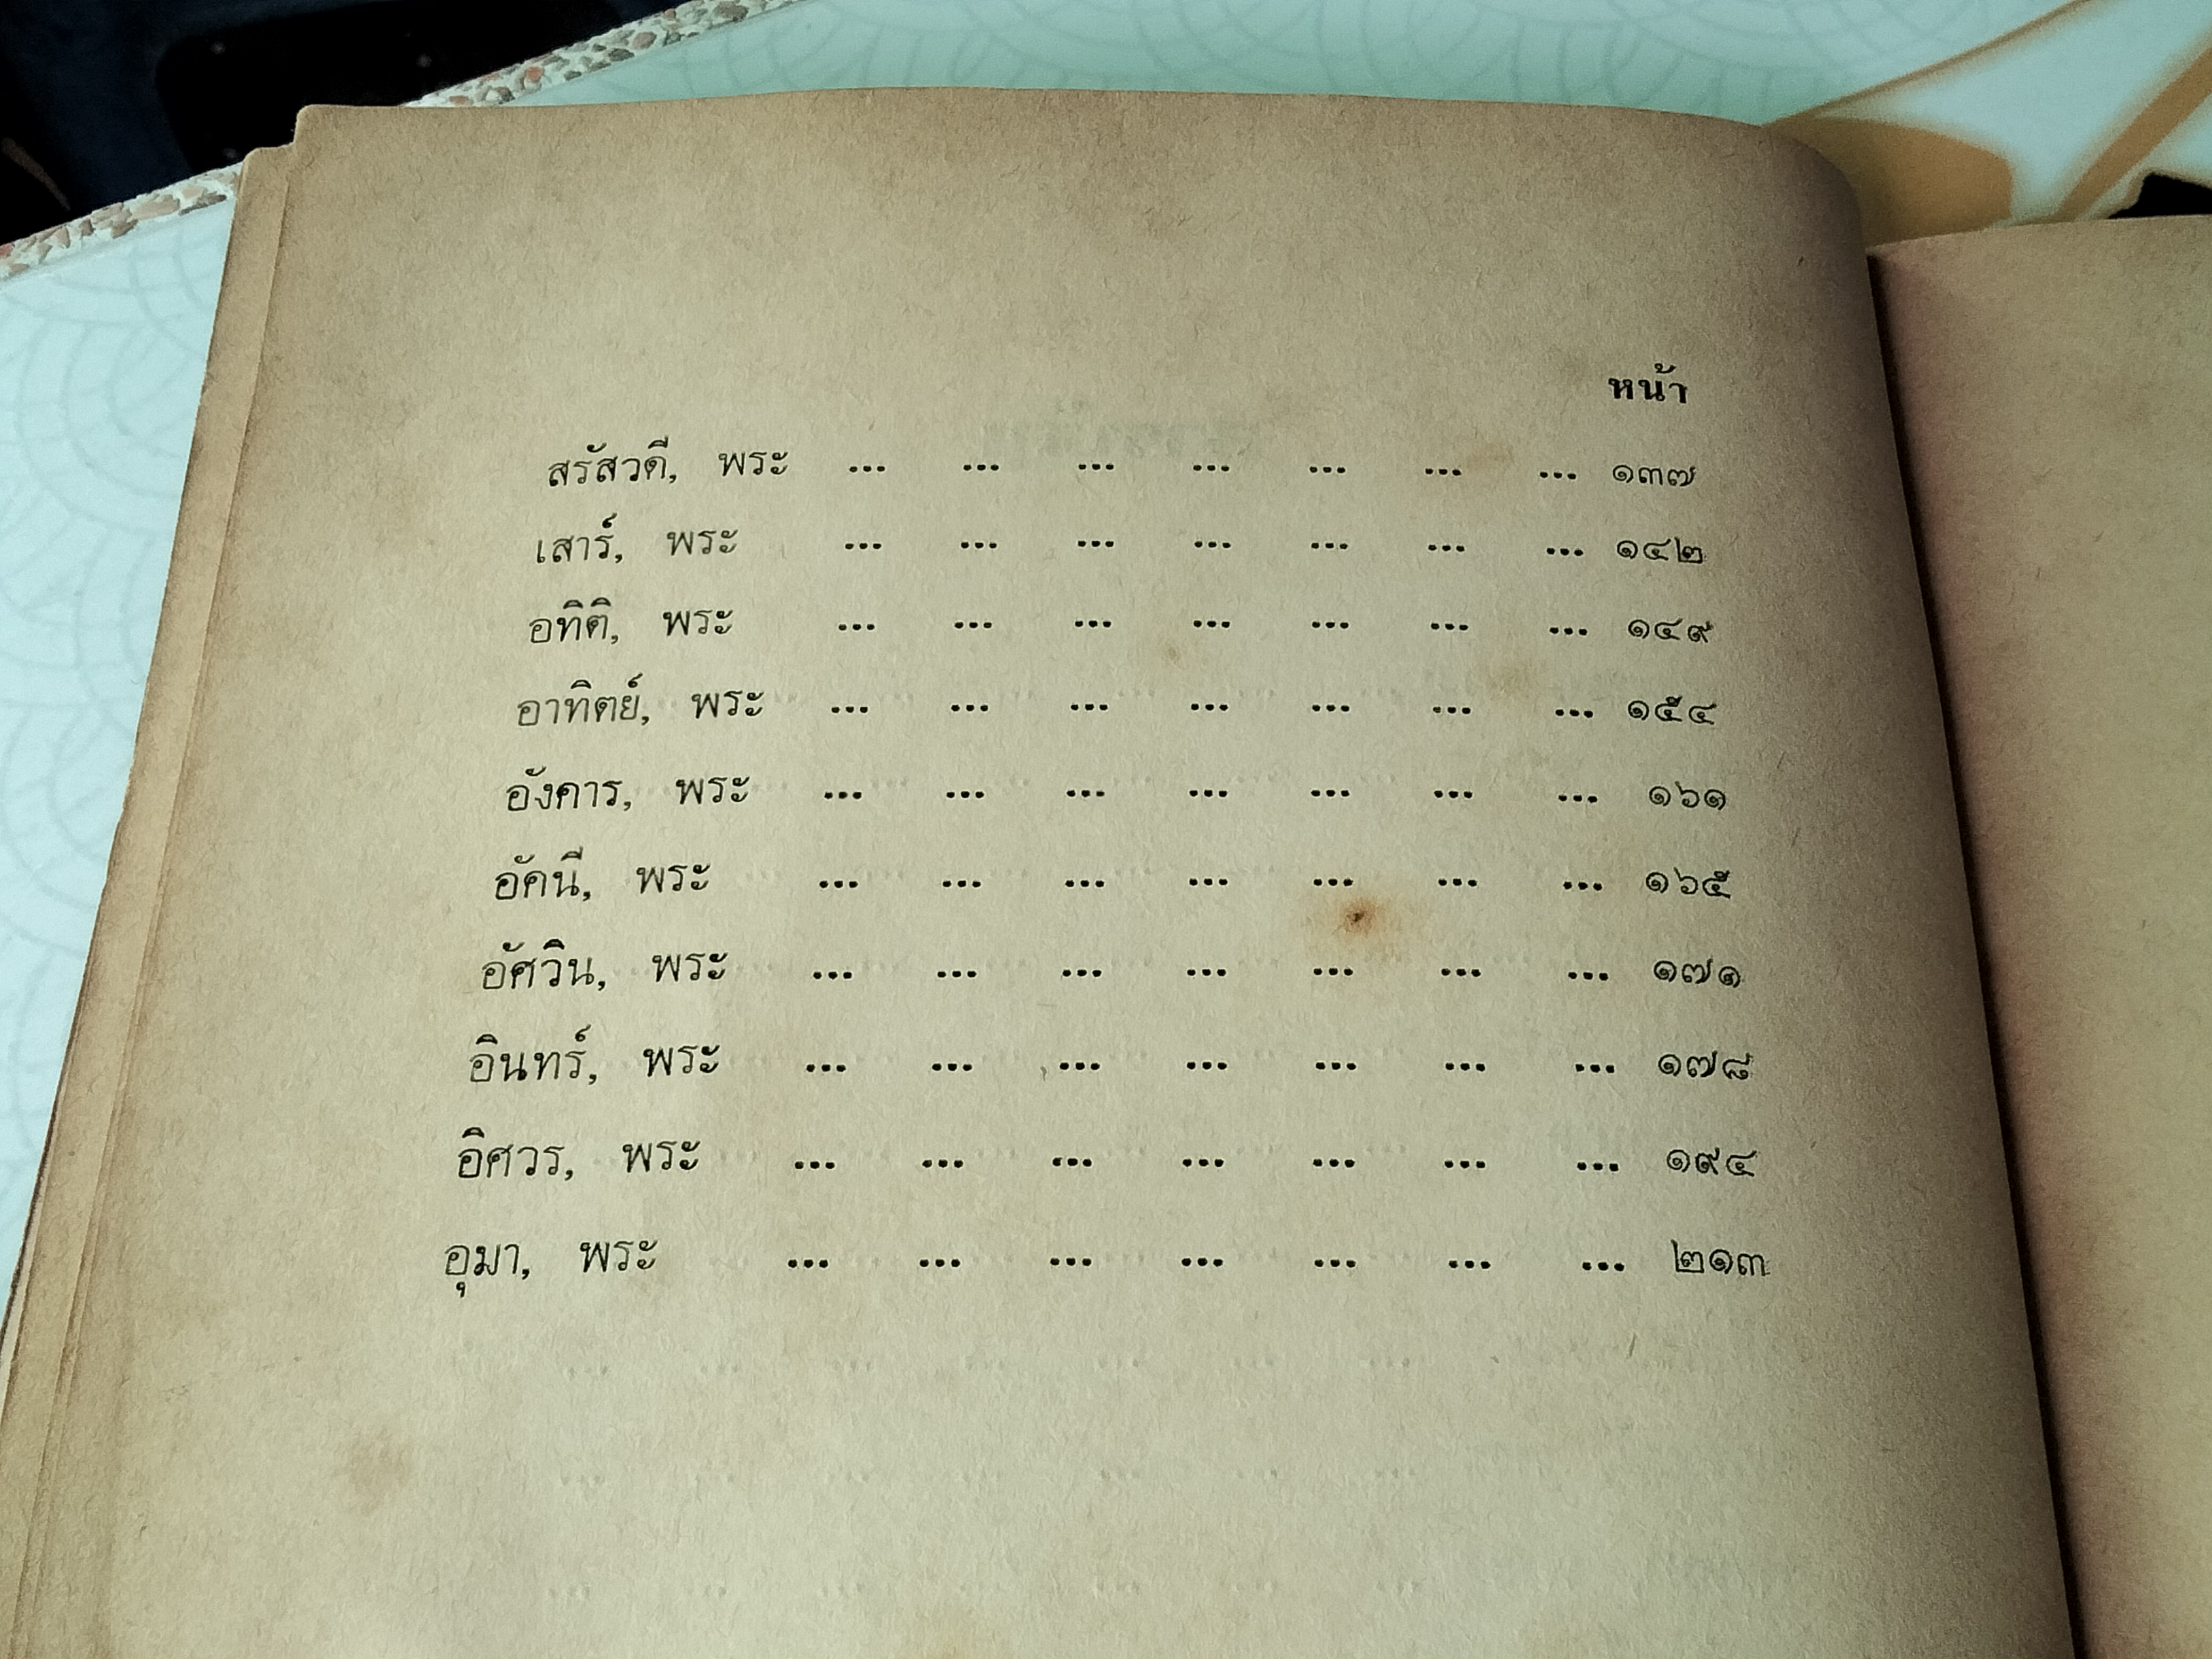 หน้า
สรัสวดี, พระ ... ... ... ... ... ... ... ๑๓๗
เสาร์, พระ ... ... ... ... ... ... ... ๑๔๒
อทิติ, พระ ... ... ... ... ... ... ... ๑๔๙
อาทิตย์, พระ ... ... ... ... ... ... ... ๑๕๔
อังคาร, พระ ... ... ... ... ... ... ... ๑๖๑
อัคนี, พระ ... ... ... ... ... ... ... ๑๖๕
อัศวิน, พระ ... ... ... ... ... ... ... ๑๗๑
อินทร์, พระ ... ... ... ... ... ... ... ๑๗๘
อิศวร, พระ ... ... ... ... ... ... ... ๑๙๔
อุมา, พระ ... ... ... ... ... ... ... ๒๑๓